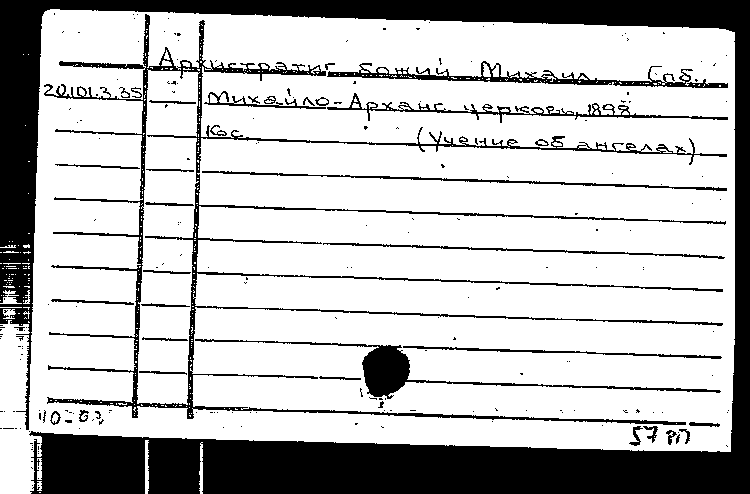 Архистратиг божий Михаил. Спб.,
20.101.3.35 Михайло-Арханг. церковь, 1898.
(Учение об ангелах)
57 РП